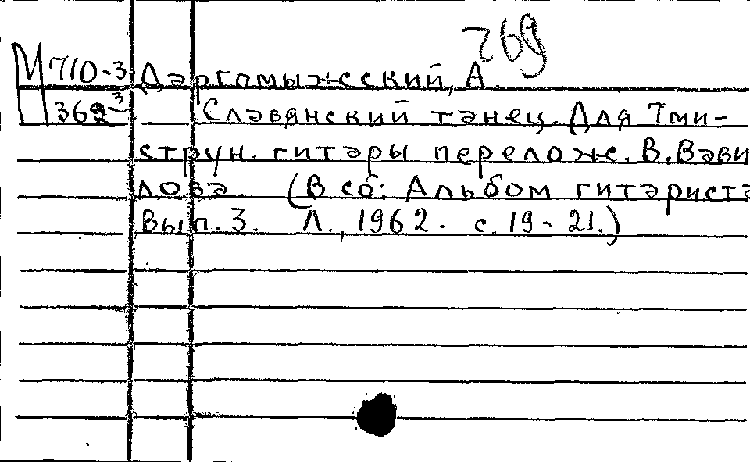 769
М 710-3 Даргомыжский, А
362-3 Славянский танец. Для 7ми-
струн. гитары перелож. В. Вави
лова. (В сб: Альбом гитариста
Вып. 3. Л., 1962. с. 19-21.)